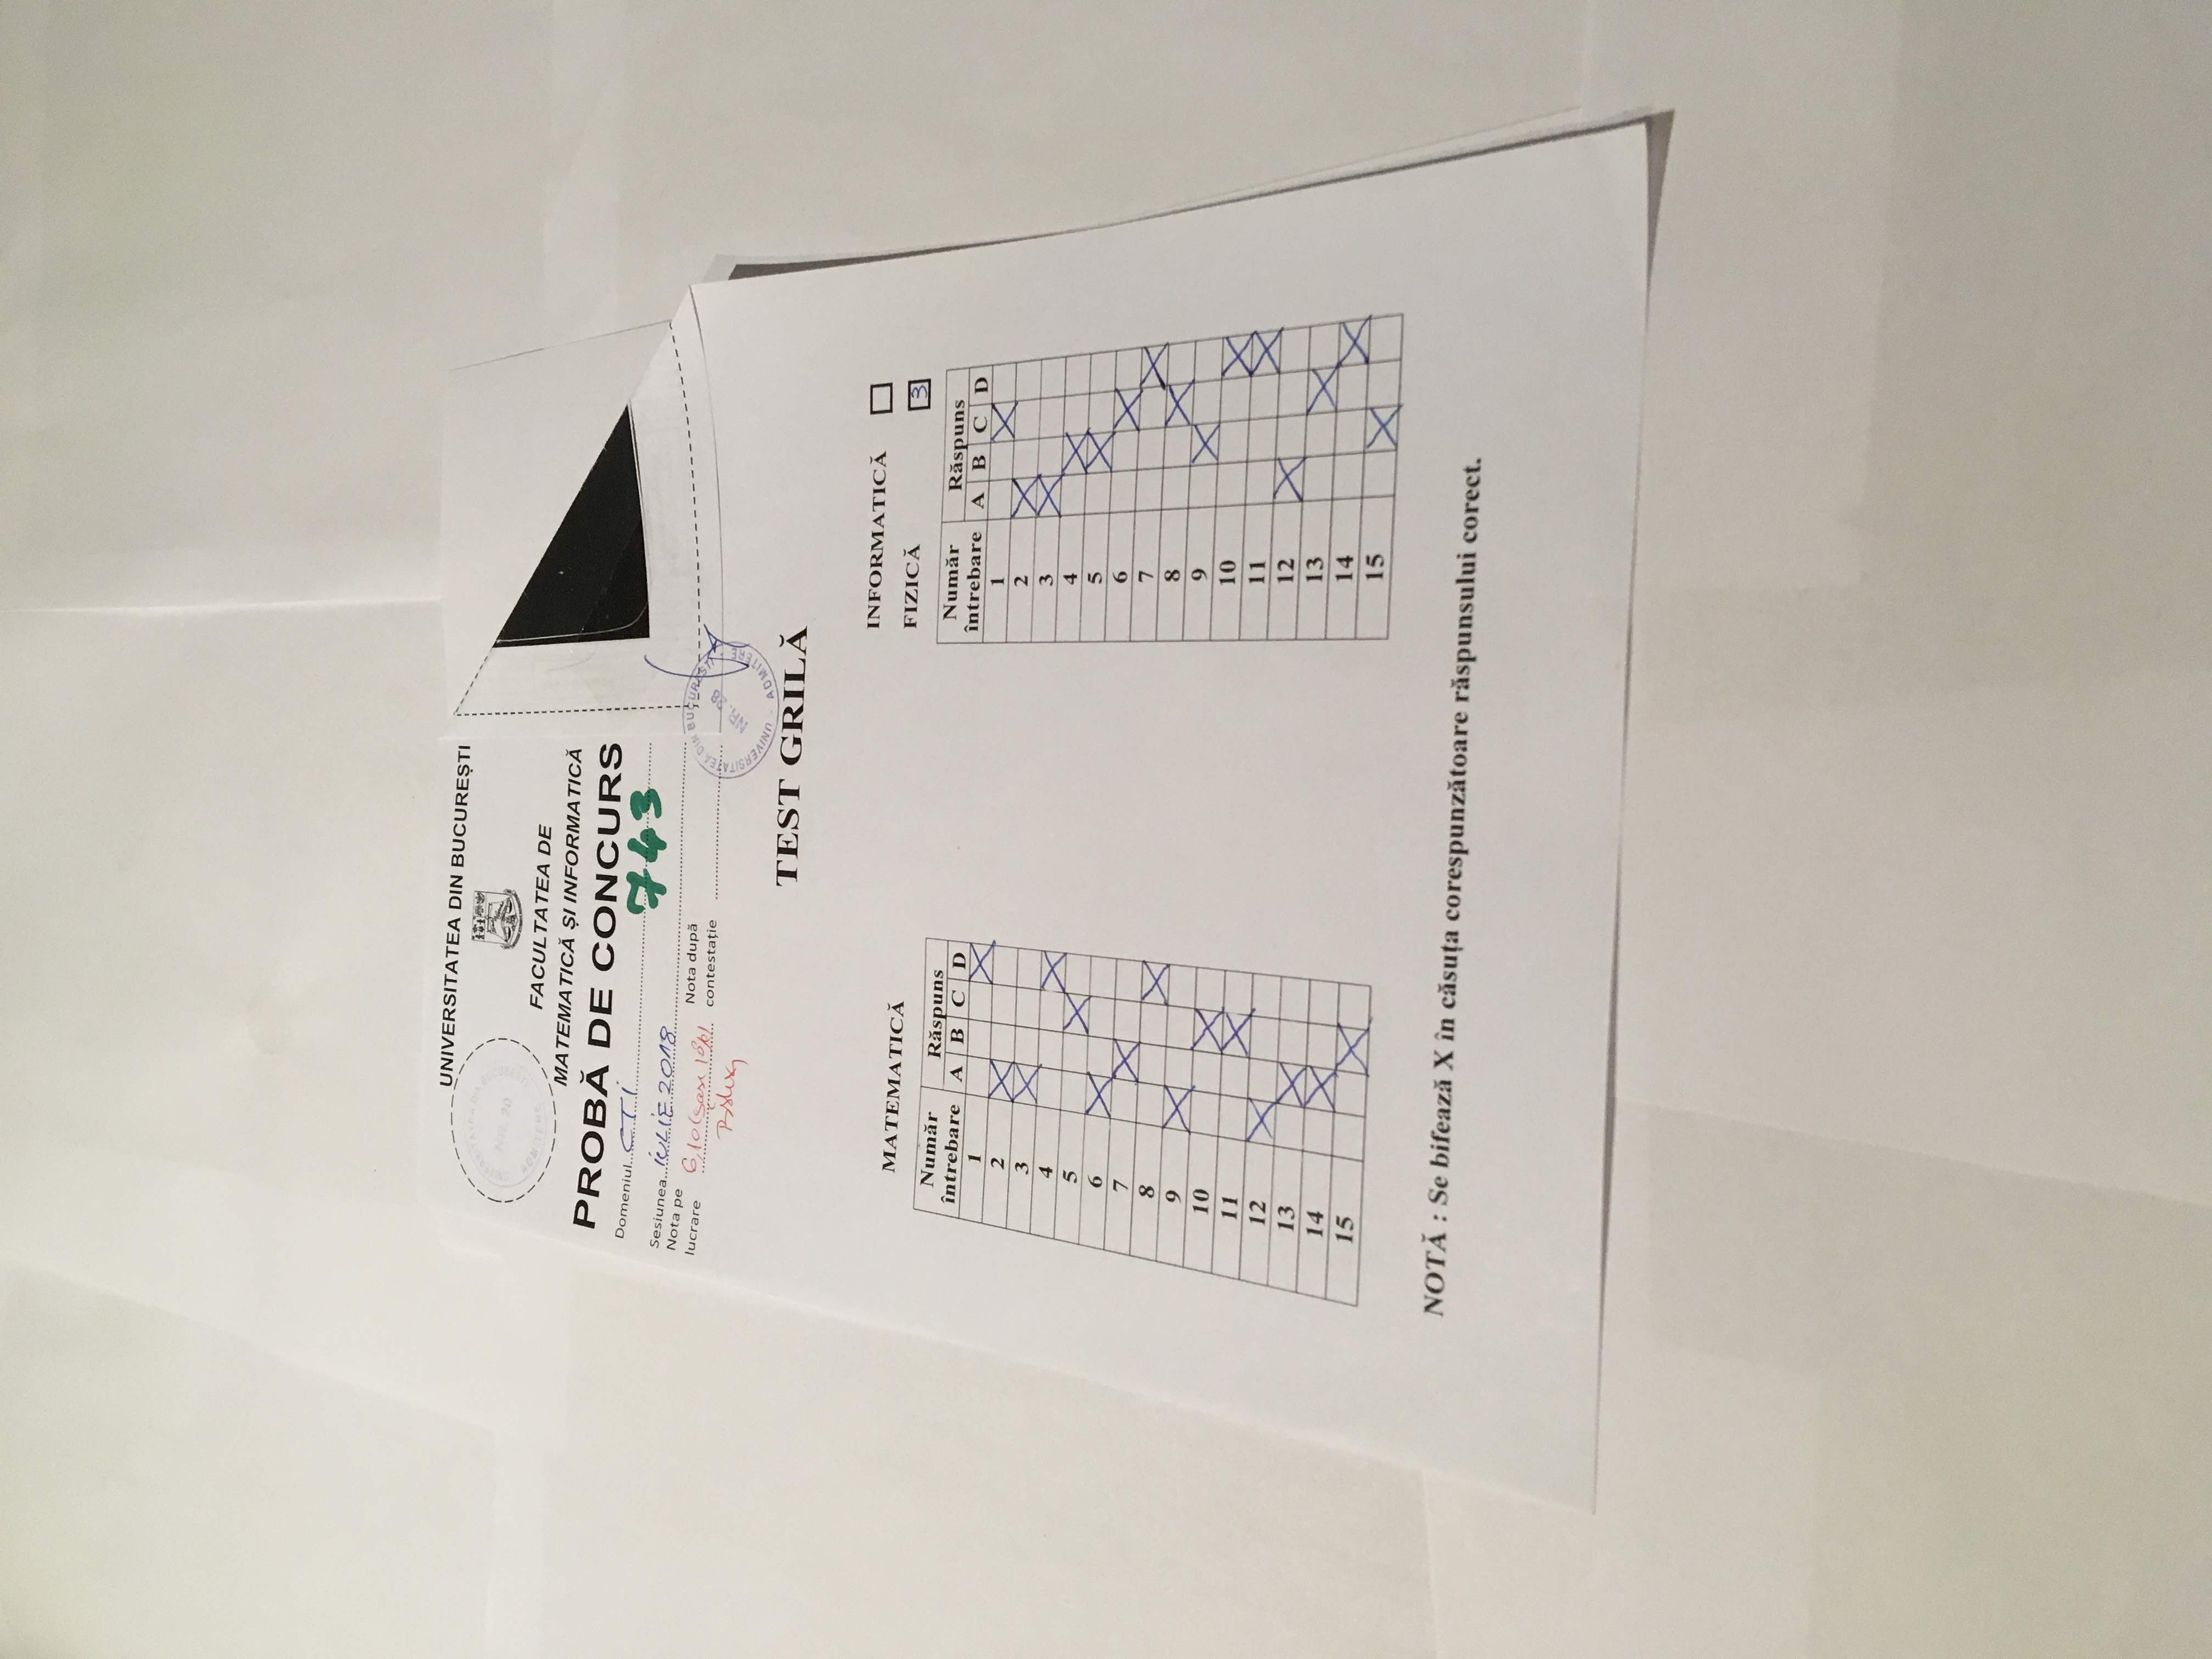 UNIVERSITATEA DIN BUCUREȘTI
UNIVERSITATEA DIN BUCUREȘTI
NR. 20
ADMITERE
FACULTATEA DE
MATEMATICĂ ȘI INFORMATICĂ
PROBĂ DE CONCURS
Domeniul CTI
743
Sesiunea IULIE 2018
Nota pe
lucrare 6,10 (șase 10%)
Nota după
contestație
UNIVERSITATEA DIN BUCUREȘTI
NR. 28
ADMITERE
TEST GRILĂ
MATEMATICĂ
Număr
întrebare
Răspuns
A B C D
1 X
2 X
3 X
4 X
5 X
6 X
7 X
8 X
9 X
10 X
11 X
12 X
13 X
14 X
15 X
INFORMATICĂ
FIZICĂ 3
Număr
întrebare
Răspuns
A B C D
1 X
2 X
3 X
4 X
5 X
6 X
7 X
8 X
9 X
10 X
11 X
12 X
13 X
14 X
15 X
NOTĂ : Se bifează X în căsuța corespunzătoare răspunsului corect.